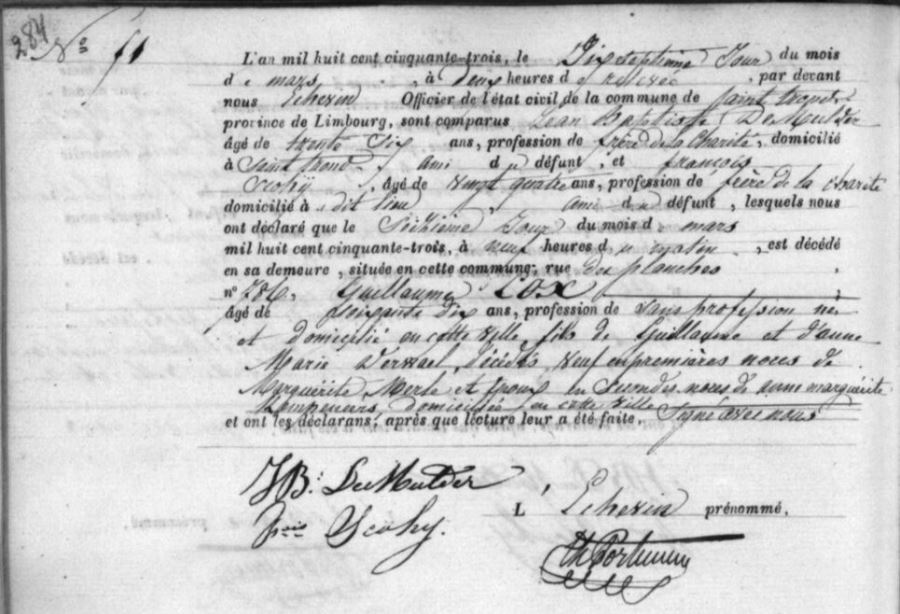 284
No 51
L'an mil huit cent cinquante-trois, le Dixseptième Jour du mois
d e mars, à deux heures d e relevée, par devant
nous Echevin Officier de l'état civil de la commune de Saint trond
province de Limbourg, sont comparus Jean Baptiste DeMulder
âgé de trente Six ans, profession de frère de la Charité, domicilié
à Saint trond, ami d u défunt, et françois
Scohy, âgé de vingt quatre ans, profession de frère de la charité
domicilié à dit lieu, ami d u défunt, lesquels nous
ont déclaré que le Seizième Jour du mois d e mars
mil huit cent cinquante-trois, à neuf heures d u matin, est décédé
en sa demeure, située en cette commune, rue des planches
n° 786, Guillaume COX
âgé de Soixante dix ans, profession de Sans profession né
et domicilié en cette ville, fils de Guillaume et d'anne
Marie décédés, veuf en premières noces de
Marguérite Merle et époux en Secondes noces d'anne marguérite
domiciliée en cette ville
et ont les déclarans, après que lecture leur a été faite, Signé avec nous
JB: DeMulder
Scohy.
L Echevin prénommé,